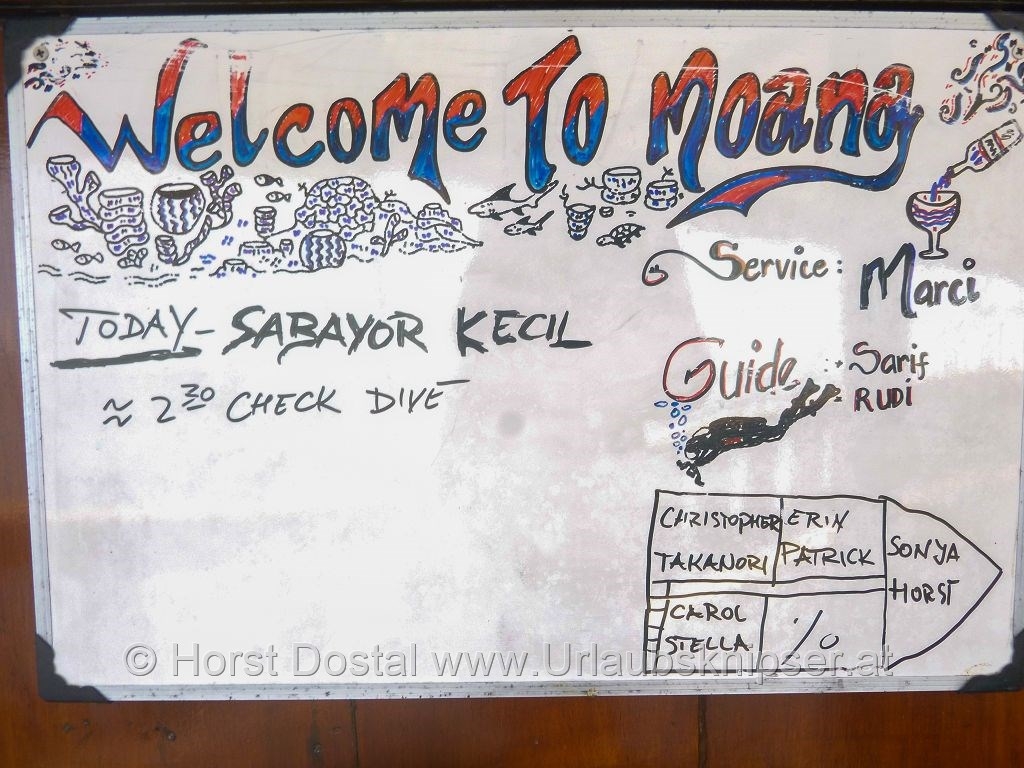 Welcome To Moana
Service: Marci
TODAY- SABAYOR KECIL
≈ 2³⁰ CHECK DIVE
Guide: Sarif
RUDI
CHRISTOPHER
TAKANORI
ERIN
PATRICK
SONYA
HORST
CAROL
STELLA
© Horst Dostal www.Urlaubsknipser.at